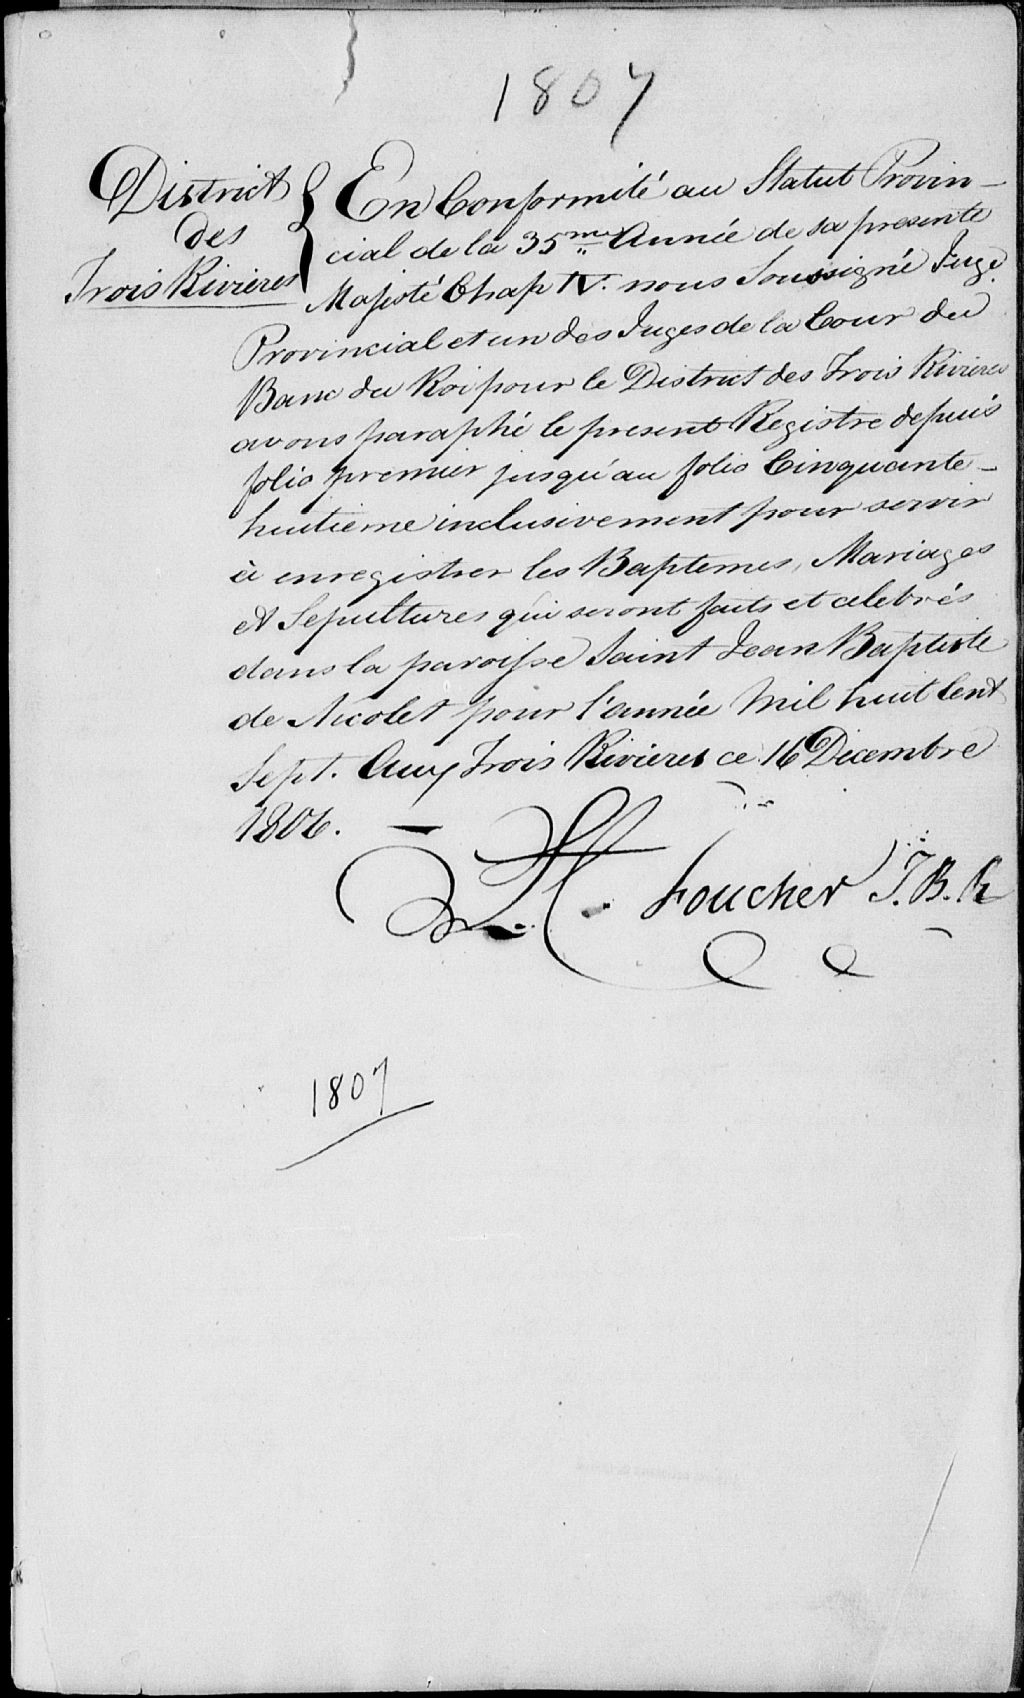 1807
District
des
Trois Rivieres
En Conformité au Statut Provin-
cial de la 35me Année de sa presente
Majesté Chap IV. nous Soussigné Juge
Provincial et un des Juges de la Cour du
Banc du Roi pour le District des Trois Rivieres
avons paraphé le present Registre depuis
folio premier jusqu'au folio Cinquante-
huitieme inclusivement pour servir
à enregistrer les Baptemes, Mariages
et Sepultures qui seront faits et celebrés
dans la paroisse Saint Jean Baptiste
de Nicolet pour l'année Mil huit Cent
Sept. Aux Trois Rivieres ce 16 Decembre
1806.
Foucher J.B.R
1807